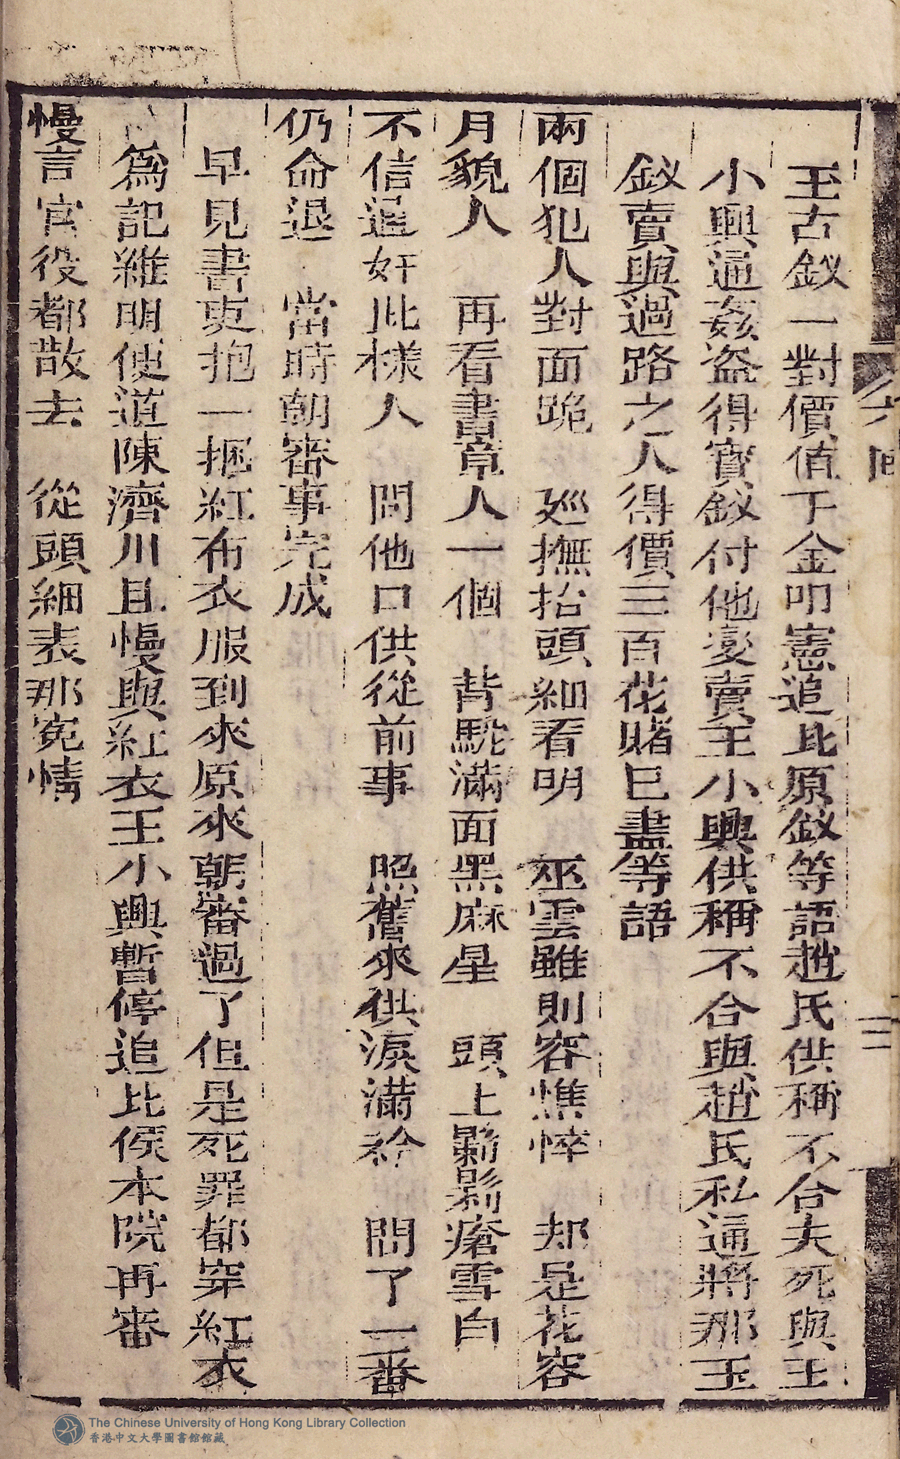 玉古釵一對價值千金叩憲追比原釵等語趙氏供稱不合夫死與王
小興通姦盗得寳釵付他変賣王小興供稱不合與趙氏私通將那玉
釵賣與過路之人得價三百花賭已盡等語
兩個犯人對面跪 廵撫抬頭細看明 巫雲雖則容憔悴 却是花容
月貌人 再看書童人一個 背駝滿面黑麻星 頭上鬎鬎瘡雪白
不信逞奸此様人 問他口供從前事 照舊來供淚滿衿 問了一番
仍命退 當時朝審事完成
早見書吏抱一捆紅布衣服到來原來朝審過了但是死罪都穿紅衣
為記維明便道陳濟川且慢與紅衣王小興暫停追比候本院再審
慢言官役都散去 從頭細表那冤情
六回
三
The Chinese University of Hong Kong Library Collection
香港中文大學圖書館館藏